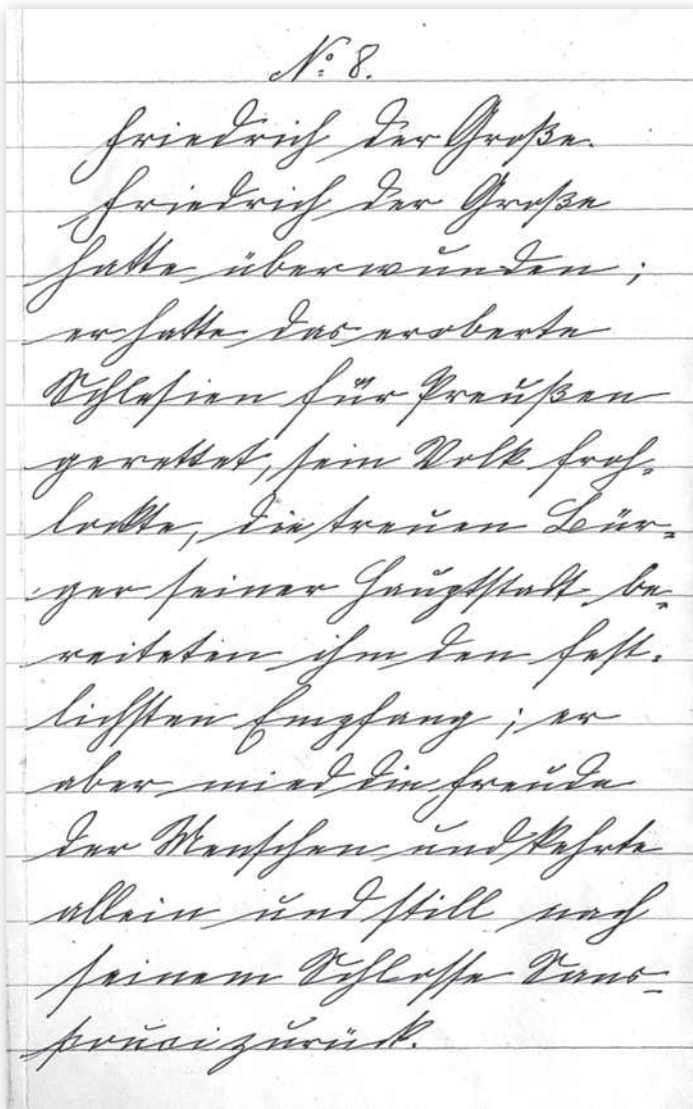 No. 8.
Friedrich der Große.
Friedrich der Große
hatte überwunden;
er hatte das eroberte
Schlesien für Preußen
gerettet, sein Volk froh-
lockte, die treuen Bür-
ger seiner Hauptstadt be-
reiteten ihm den fest-
lichsten Empfang; er
aber mied die Freude
der Menschen und kehrte
allein und still nach
seinem Schlosse Sans-
souci zurück.